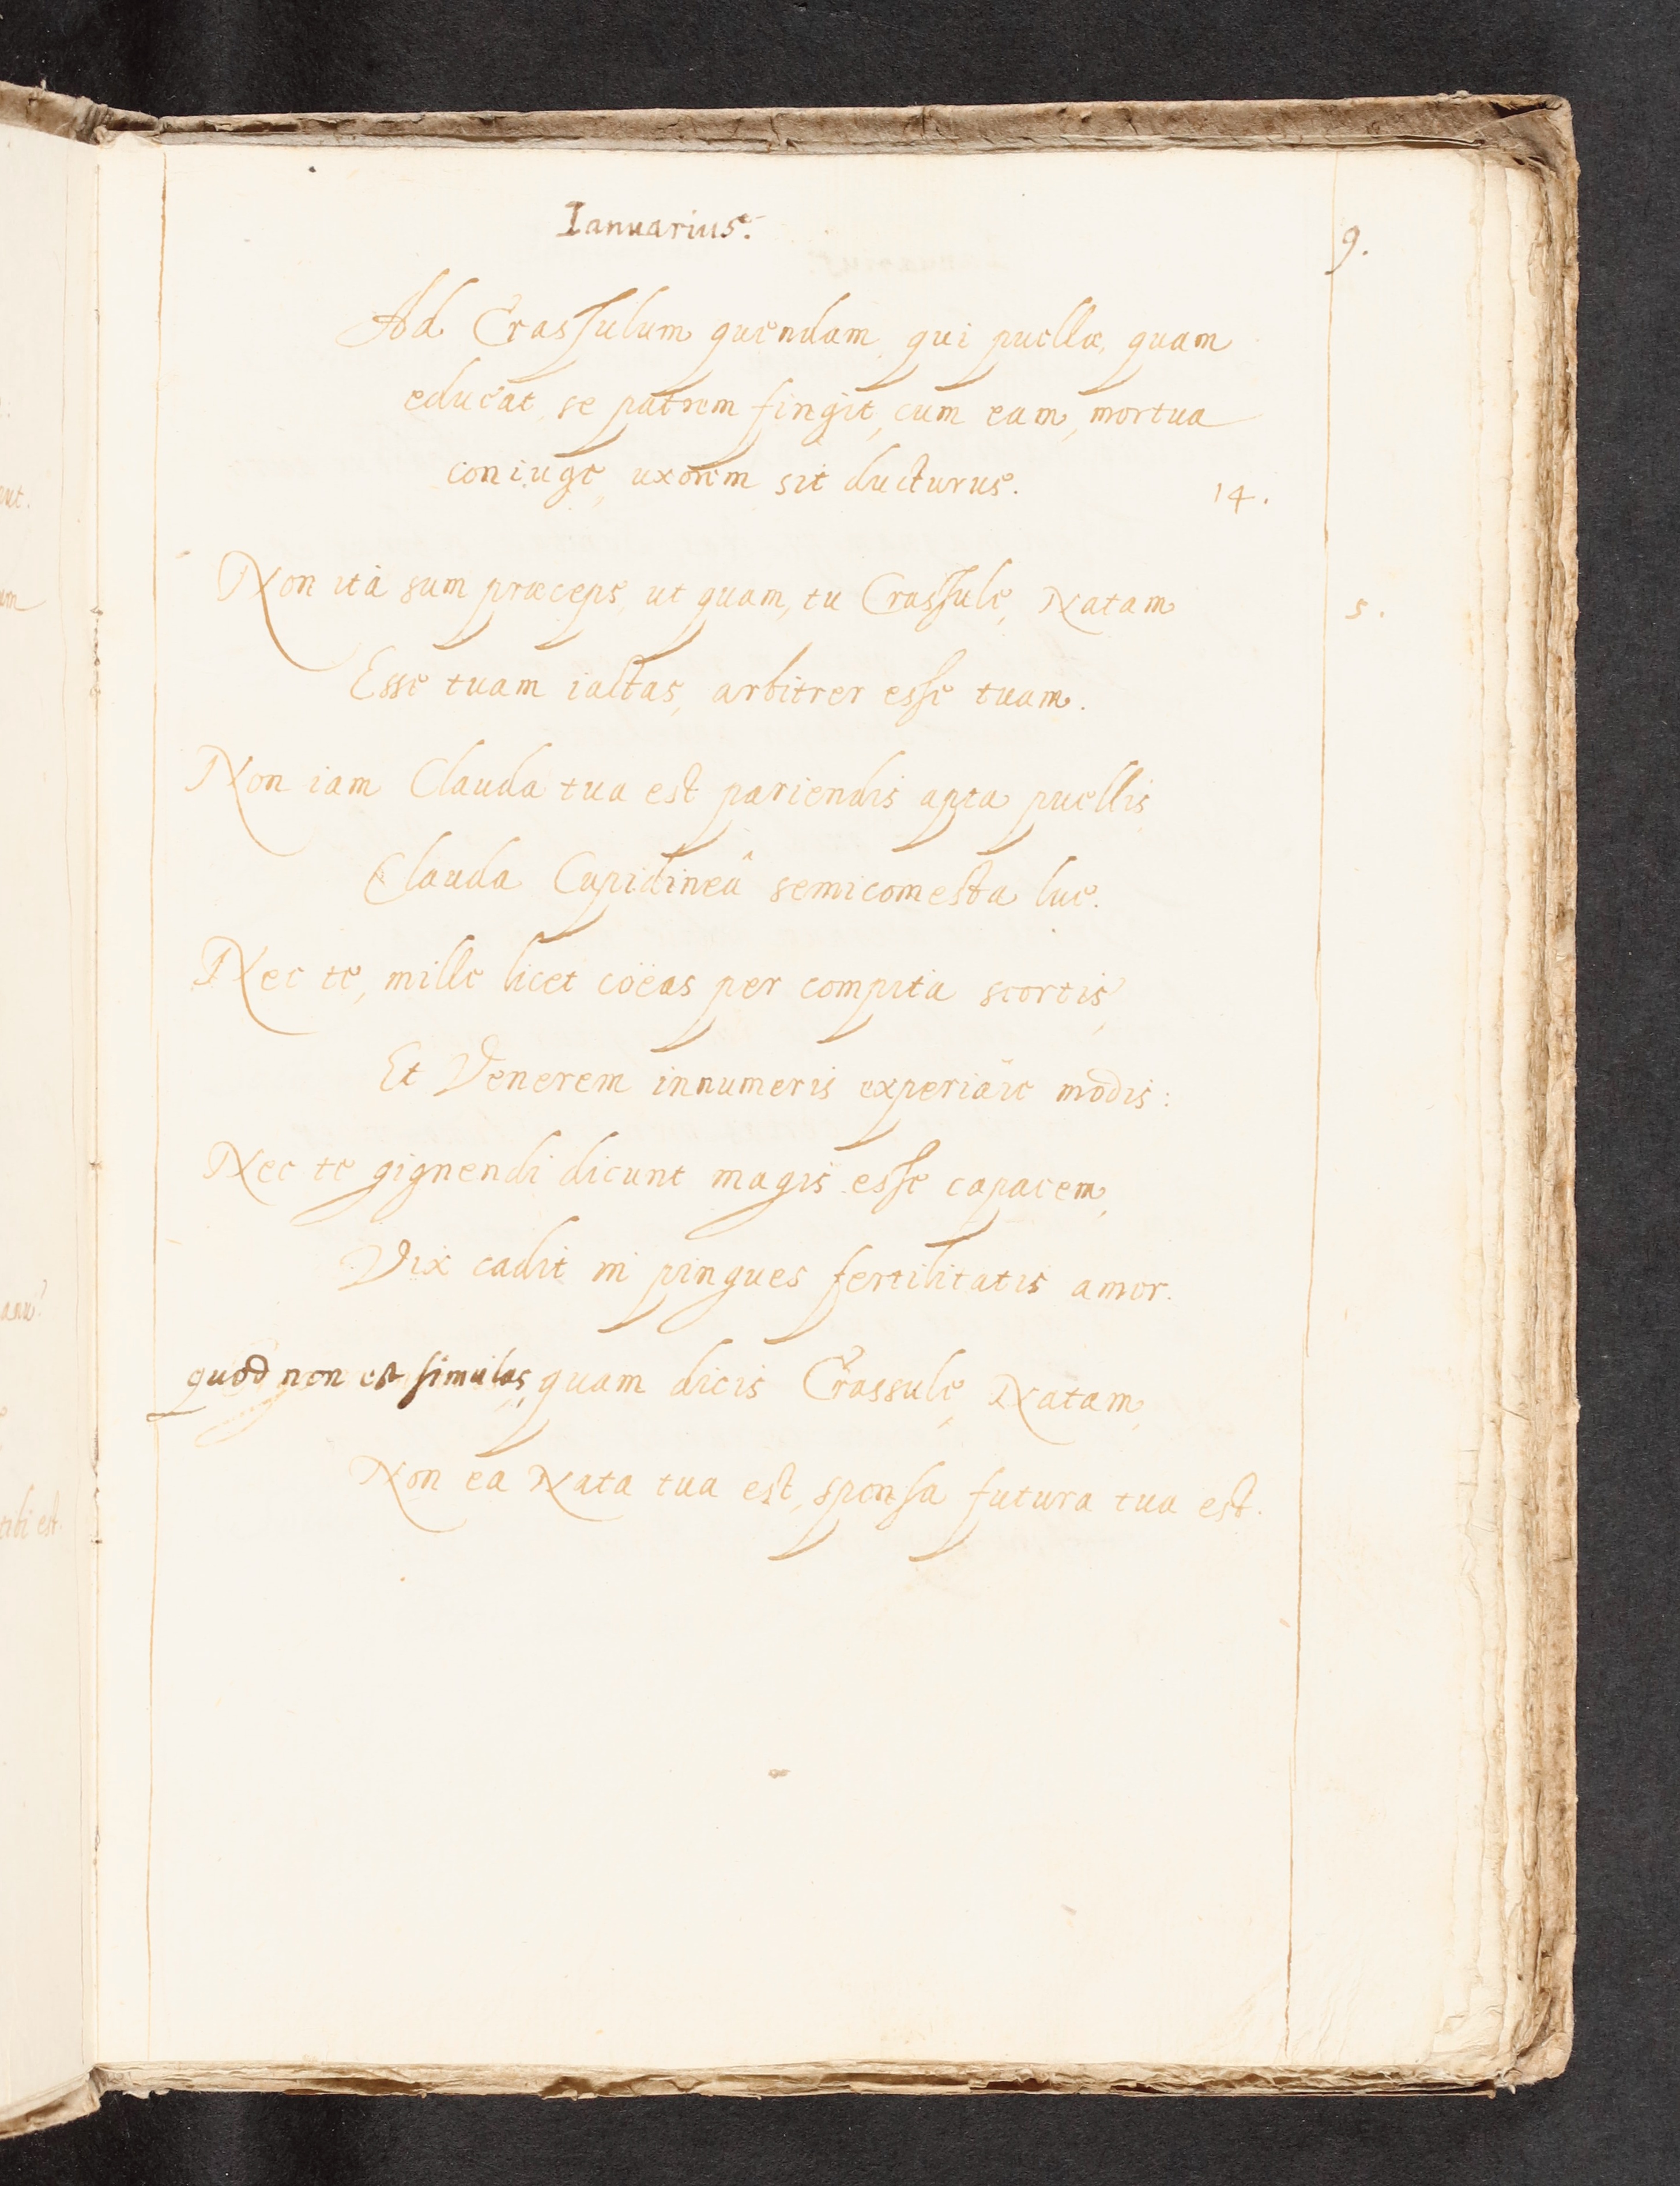 Ianuarius.
9.
Ad Crassulum quendam, qui puellæ, quam
educat, se patrem fingit, cum eam, mortua
coniuge, uxorem sit ducturus.
14.
Non ità sum præceps, ut quam, tu Crassule, Natam
5.
Esse tuam iactas, arbitrer esse tuam.
Non iam Clauda tua est pariendis apta puellis,
Clauda Cupidineâ semicomesta lue.
Nec te, mille licet coëas per compita scortis,
Et Venerem innumeris experiare modis:
Nec te gignendi dicunt magis esse capacem,
Vix cadit in pingues fertilitatis amor.
quod non est simulas, quam dicis Crassule, Natam,
Non ea Nata tua est, sponsa futura tua est.